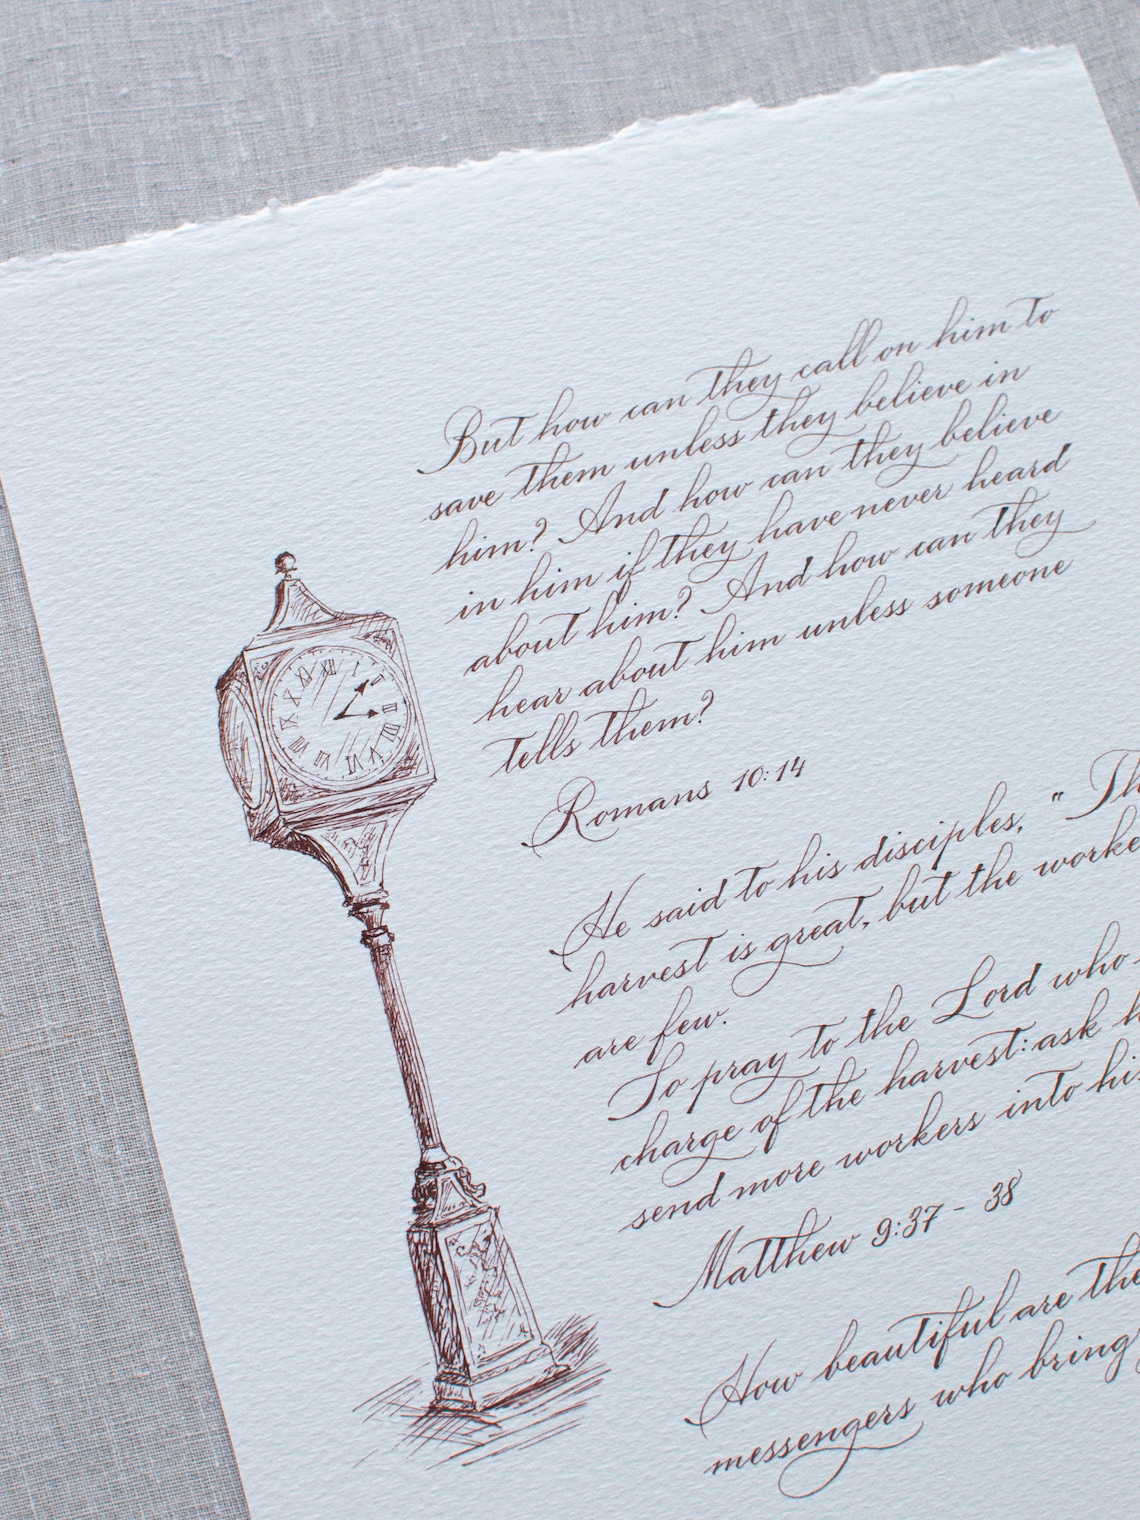 But how can they call on him to
save them unless they believe in
him? And how can they believe
in him if they have never heard
about him? And how can they
hear about him unless someone
tells them?
Romans 10:14
He said to his disciples, " Th
harvest is great, but the worke
are few.
So pray to the Lord who
charge of the harvest: ask h
send more workers into hi
Matthew 9:37 - 38
How beautiful are the
messengers who bring
XII
I
II
III
V
VI
VII
VIII
IX
X
XI